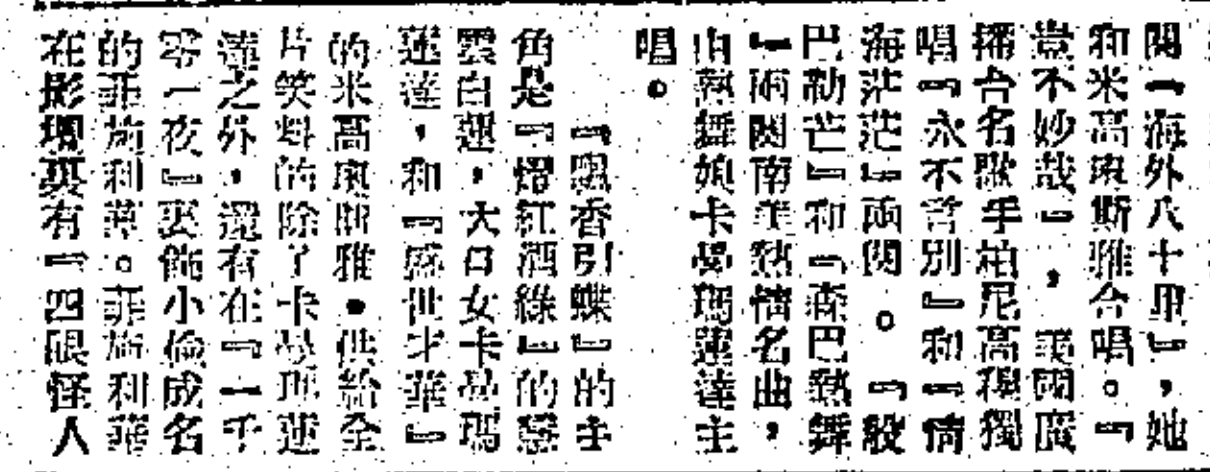 闋『海外八十里』，她
和米高東斯雅合唱。『
豈不妙哉』，美國廣
播台名歌手柏尼高獨
唱『永不言別』和『情
海茫茫』兩闋。『殺
巴勒芒』和『森巴熱舞
』兩闋南美熱情名曲，
由熱舞娘卡曼瑪蓮達主
唱。
『飄香引蝶』的主
角是『燈紅酒綠』的
雲白蓮，大口女卡曼瑪
蓮達，和『盛世才華』
的米高東斯雅。供給全
片笑料的除了卡曼瑪蓮
達之外，還有在『一千
零一夜』裏飾小偷成名
的菲施利華。菲施利華
在影壇裏有『四眼怪人